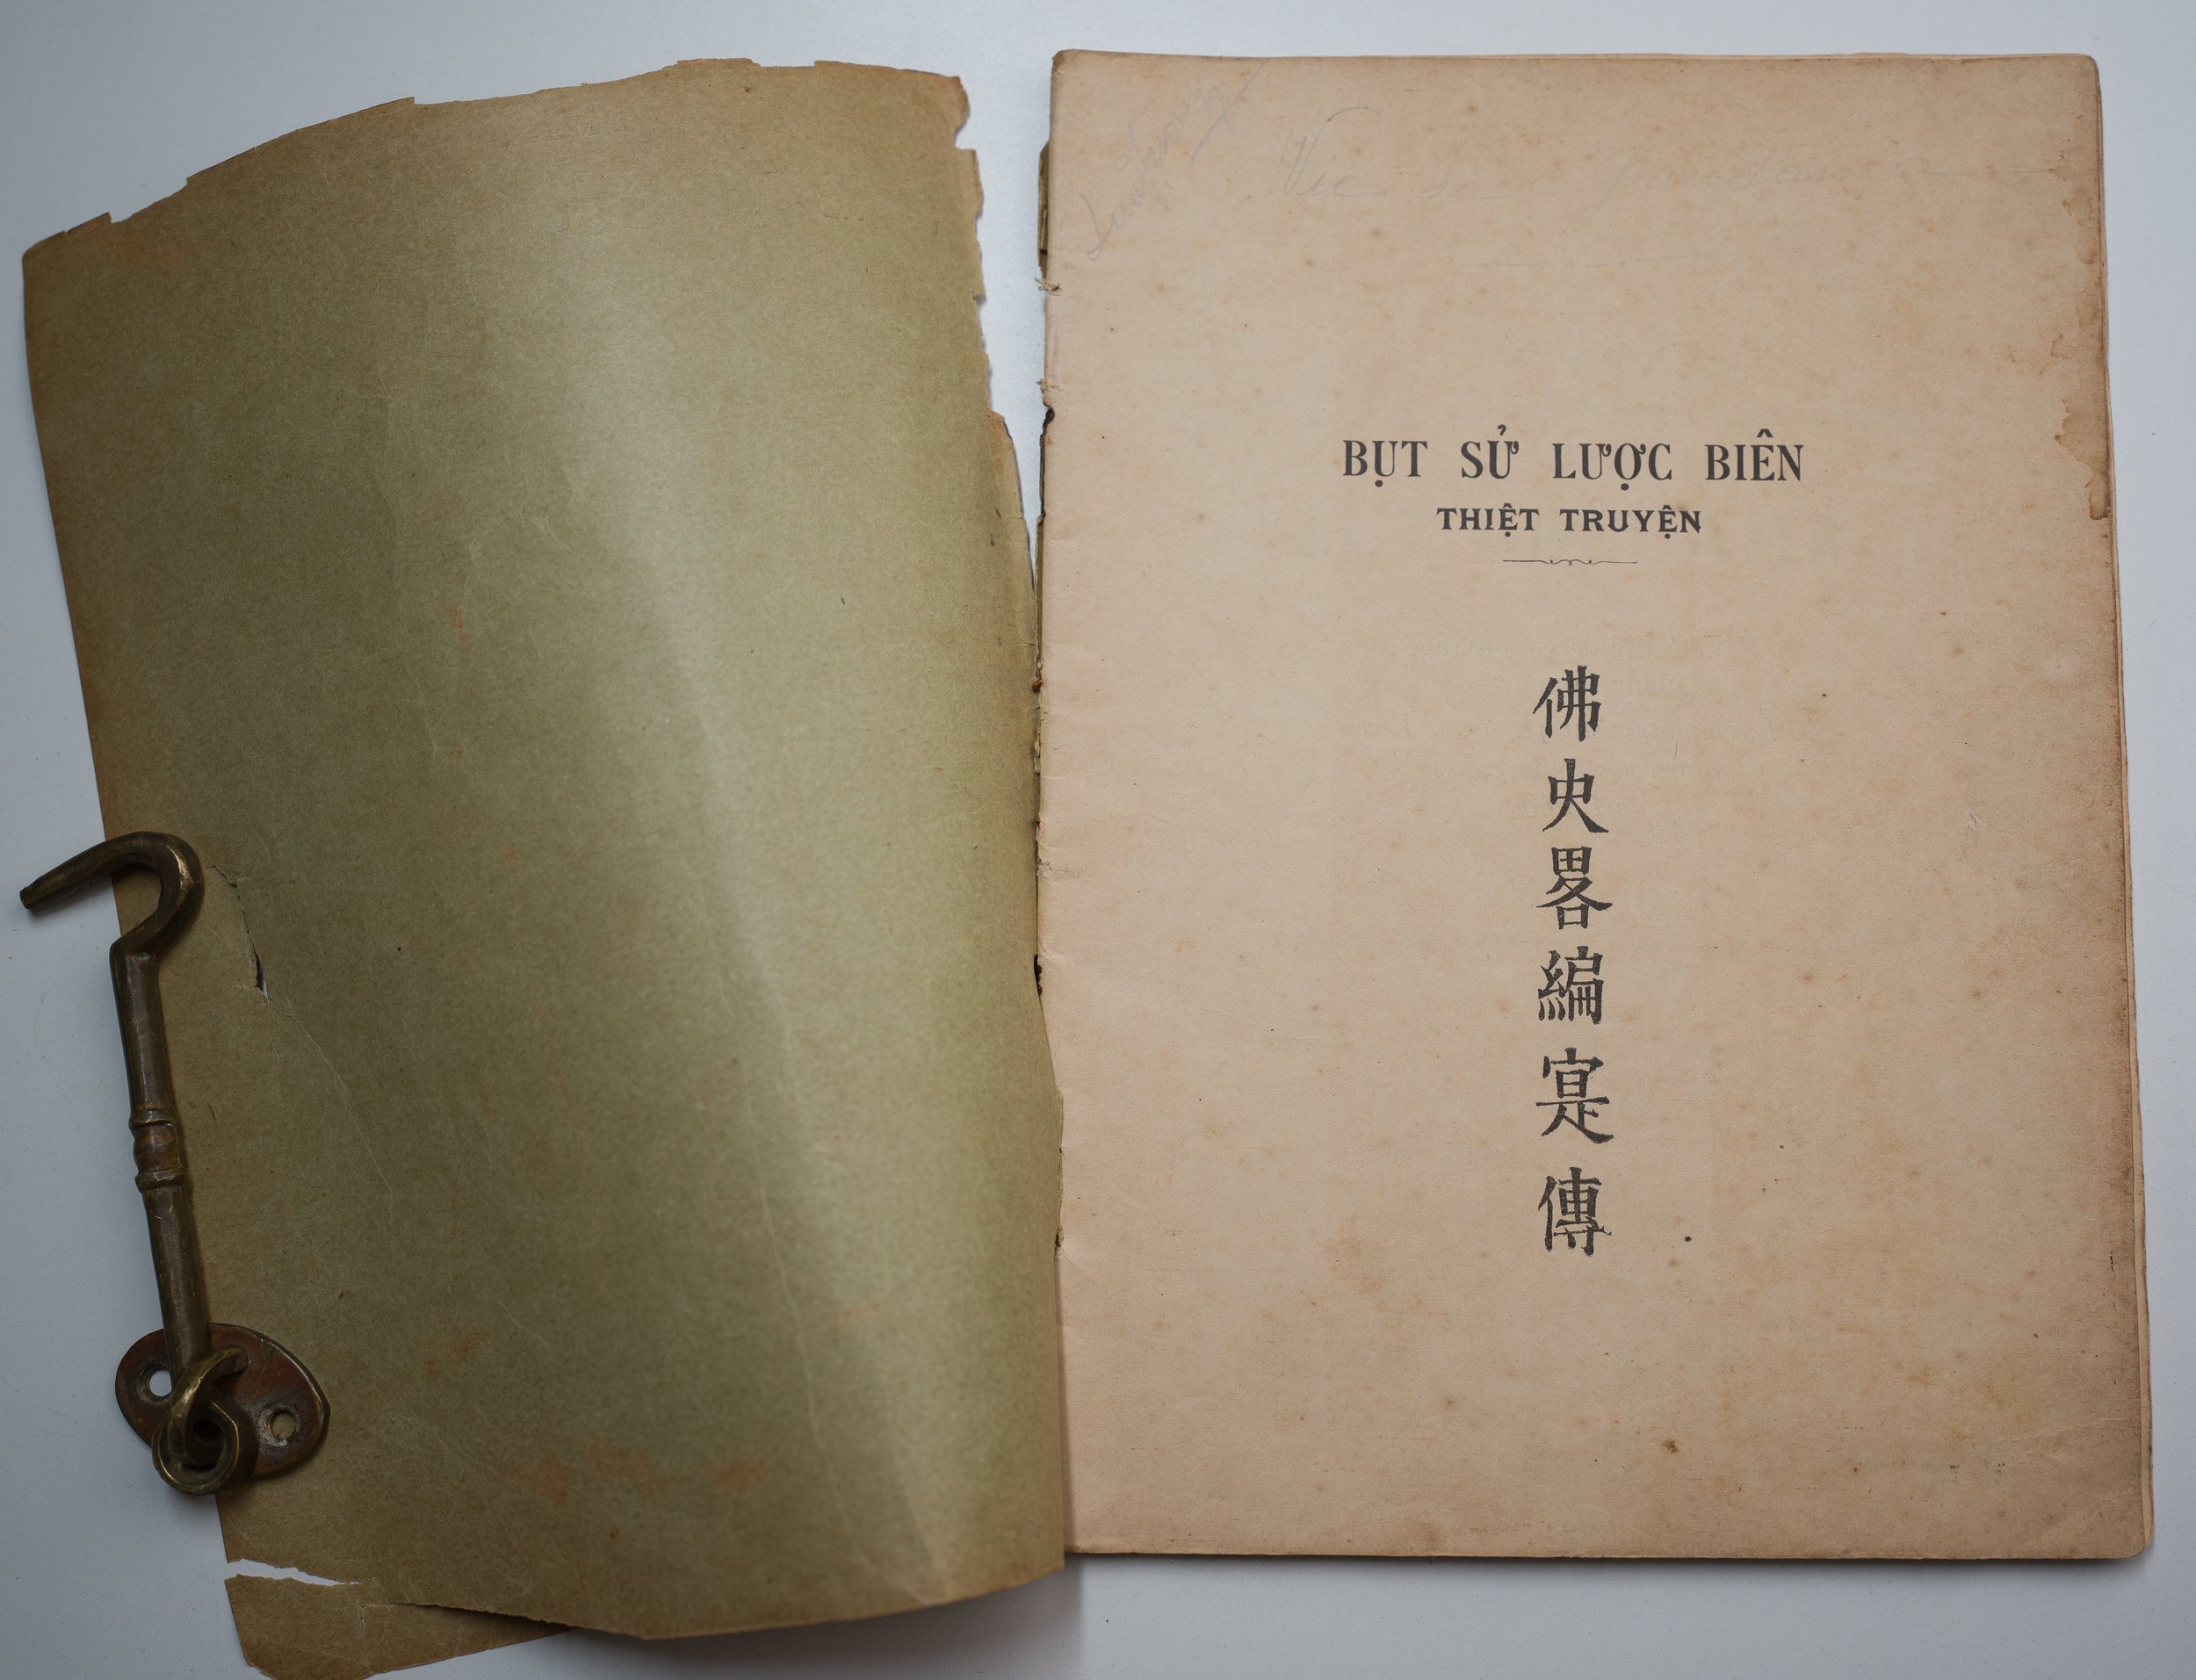 BỤT SỬ LƯỢC BIÊN
THIỆT TRUYỆN
佛史畧編寔傳